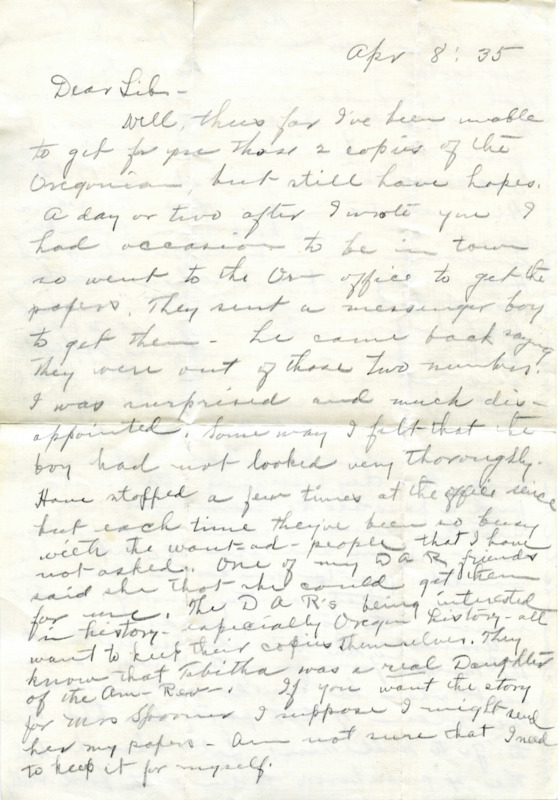 Apr 8: 35
Dear Lib -
Well, thus far I've been unable
to get for you those 2 copies of the
Oregonian, but still have hopes.
A day or two after I wrote you I
had occasion to be in town
so went to the Or- office to get the
papers. They sent a messenger boy
to get them - he came back saying
they were out of those two numbers.
I was surprised and much dis-
appointed. Some way I felt that the
boy had not looked very thoroughly.
Have stopped a few times at the office since
but each time they've been so busy
with the want-ad-people that I have
not asked. One of my D A R friends
said she that she could get them
for me. The D A R's being interested
in history - especially Oregon history - all
want to keep their copies themselves. They
know that Tabitha was a real Daughter
of the Am-Rev-. If you want the story
for Mrs Spooner I suppose I might send
her my papers - Am not sure that I need
to keep it for myself.